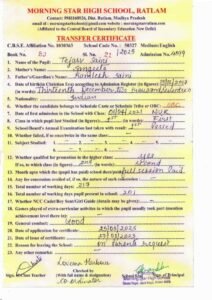 MORNING STAR HIGH SCHOOL, RATLAM
Contact: Dist. Ratlam, Madhya Pradesh
(Affiliated to the Central Board of Secondary Education New Delhi)
TRANSFER CERTIFICATE
C.B.S.E. Affiliation No. School Code No.: 50327 Medium: English
Book No. Sl. No. 21 /2025 Admission No.
1. Name of the Pupil: Tejasv Saini
2. Mother's Name: Sangeeta
3. Father's/Guardian's Name: Kamlesh Saini
4. Date of birth (Christian Era) according to Admission Register (in figures)
(in words) Thirteenth December two thousand
5. Nationality: Indian
6. Whether the candidate belongs to Schedule Caste or Schedule Tribe or OBC: OBC
7. Date of first admission in the School with class
8. Class in which pupil last Studied (in figures) (in words) First
9. School/Board's Annual Examination last taken with result: Passed
10. Whether failed, if so once/twice in the same class:
11. Subject Studied:
12. Whether qualified for promotion to the higher class: Yes
if so, to which class (in figure) (in words)
13. Month upto which the pupil has paid school dues/paid: full session paid
14. Any fee concession availed of, if so the nature of such concession:
15. Total number of working days: 219
16. Total number of working days pupil present in school: 201
17. Whether NCC Cadet/Boy Scout/Girl Guide (details may be given):
18. Games played or extra curricular activities in which the pupil usually took part (mention
achievement level there in)
19. General conduct: Good
20. Date of application for certificate:
21. Date of issue of certificate:
22. Reason for leaving the School: on Parents request
23. Any other remarks:
Sign. of Class Teacher Checked by Sign. of Principal
(With full name & designation)
Co-ordinator